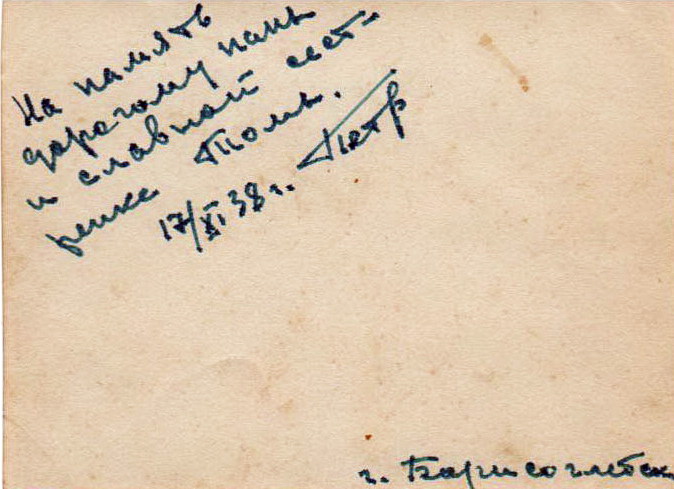 На память
дорогому папе
и славной сест-
ренке Томе.
17/XI 38 г. Петр
г. Борисоглебск